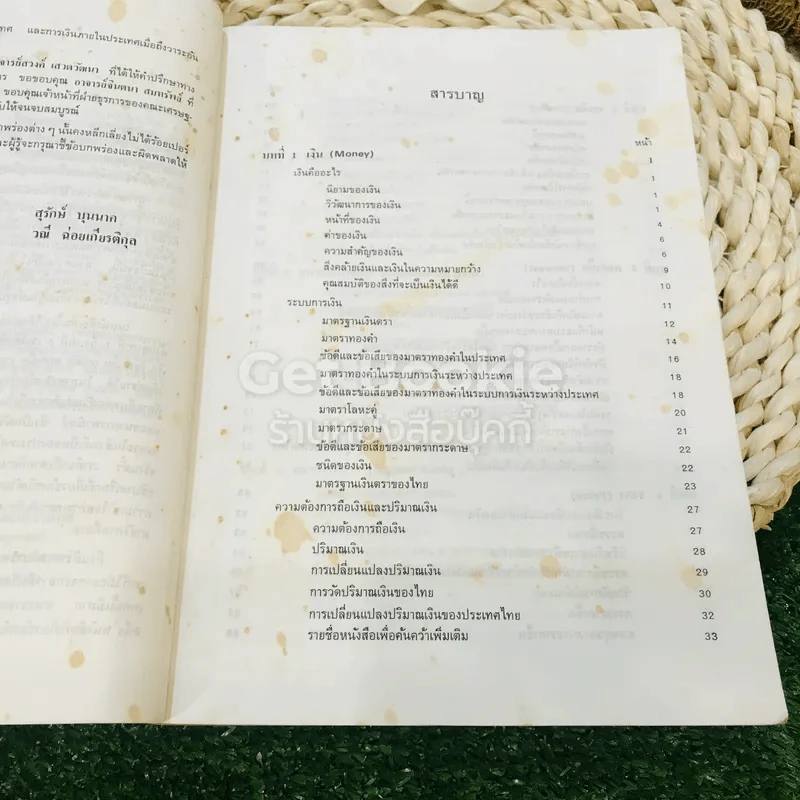 และการเงินภายในประเทศเมื่อถึงวาระอัน
อาจารย์สวงค์ เสวตวัฒนา ที่ได้ให้คำปรึกษาทาง
ขอขอบคุณ อาจารย์จินตนา สมาร์พลี ที่
ขอบคุณเจ้าหน้าที่ฝ่ายธุรการของคณะเศรษฐ-
ให้จนจบสมบูรณ์
พร่องต่าง ๆ นั้นคงหลีกเลี่ยงไม่ได้ร้อยเปอร์
ผู้รู้จะกรุณาชี้ข้อบกพร่องและผิดพลาดให้
สุรักษ์ บุนนาค
วณี ฉ่อยเกียรติกุล
สารบาญ
หน้า
บทที่ 1 เงิน (Money) 1
เงินคืออะไร 1
นิยามของเงิน 1
วิวัฒนาการของเงิน 1
หน้าที่ของเงิน 4
ค่าของเงิน 6
ความสำคัญของเงิน 6
สิ่งคล้ายเงินและเงินในความหมายกว้าง 9
คุณสมบัติของสิ่งที่จะเป็นเงินได้ดี 10
ระบบการเงิน 11
มาตรฐานเงินตรา 12
มาตราทองคำ 14
ข้อดีและข้อเสียของมาตราทองคำในประเทศ 16
มาตราทองคำในระบบการเงินระหว่างประเทศ 18
ข้อดีและข้อเสียของมาตราทองคำในระบบการเงินระหว่างประเทศ 18
มาตราโลหะคู่ 20
มาตรากระดาษ 21
ข้อดีและข้อเสียของมาตรากระดาษ 22
ชนิดของเงิน 22
มาตรฐานเงินตราของไทย 23
ความต้องการถือเงินและปริมาณเงิน 27
ความต้องการถือเงิน 27
ปริมาณเงิน 28
การเปลี่ยนแปลงปริมาณเงิน 29
การวัดปริมาณเงินของไทย 30
การเปลี่ยนแปลงปริมาณเงินของประเทศไทย 32
รายชื่อหนังสือเพื่อค้นคว้าเพิ่มเติม 33
ร้านหนังสือบุ๊คกี้